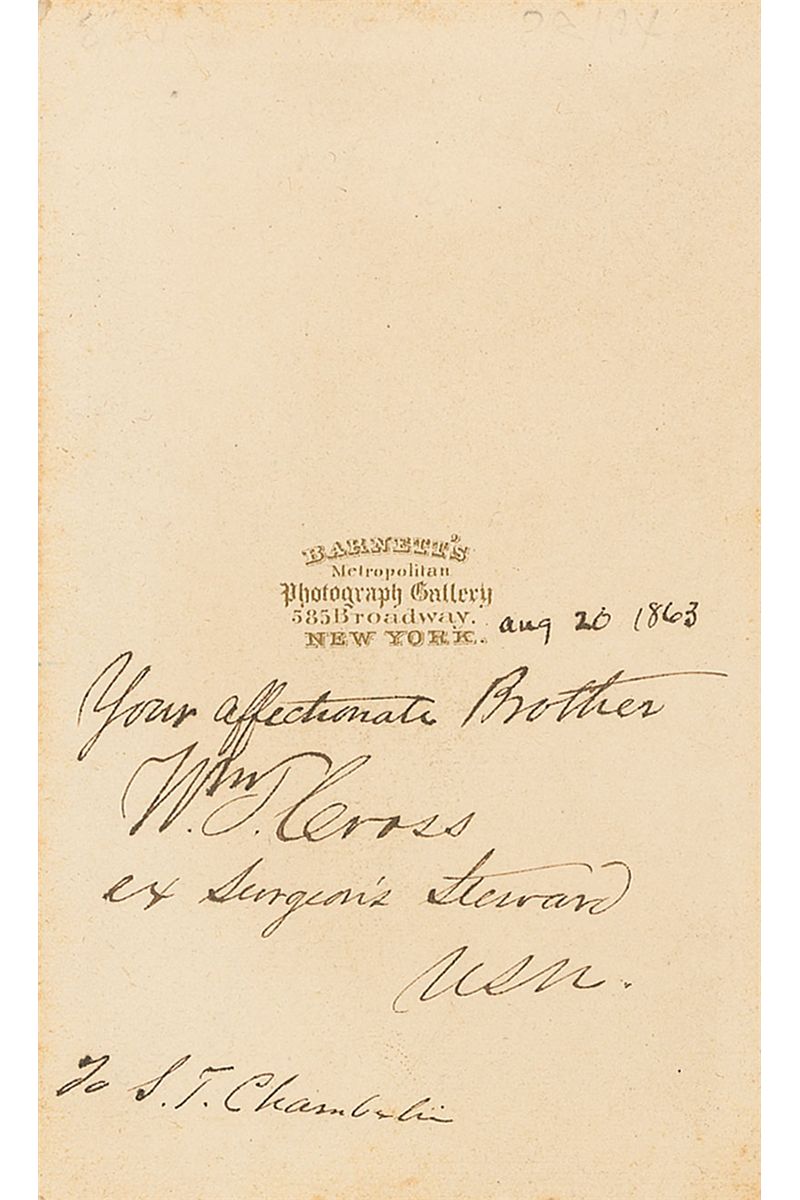 BARNETT'S
Metropolitan
Photograph Gallery
585 Broadway.
NEW YORK.
aug 20 1863
Your affectionate Brother
Wm J. Cross
ex Surgeon's Steward
USN.
To S. T. Chamberlin